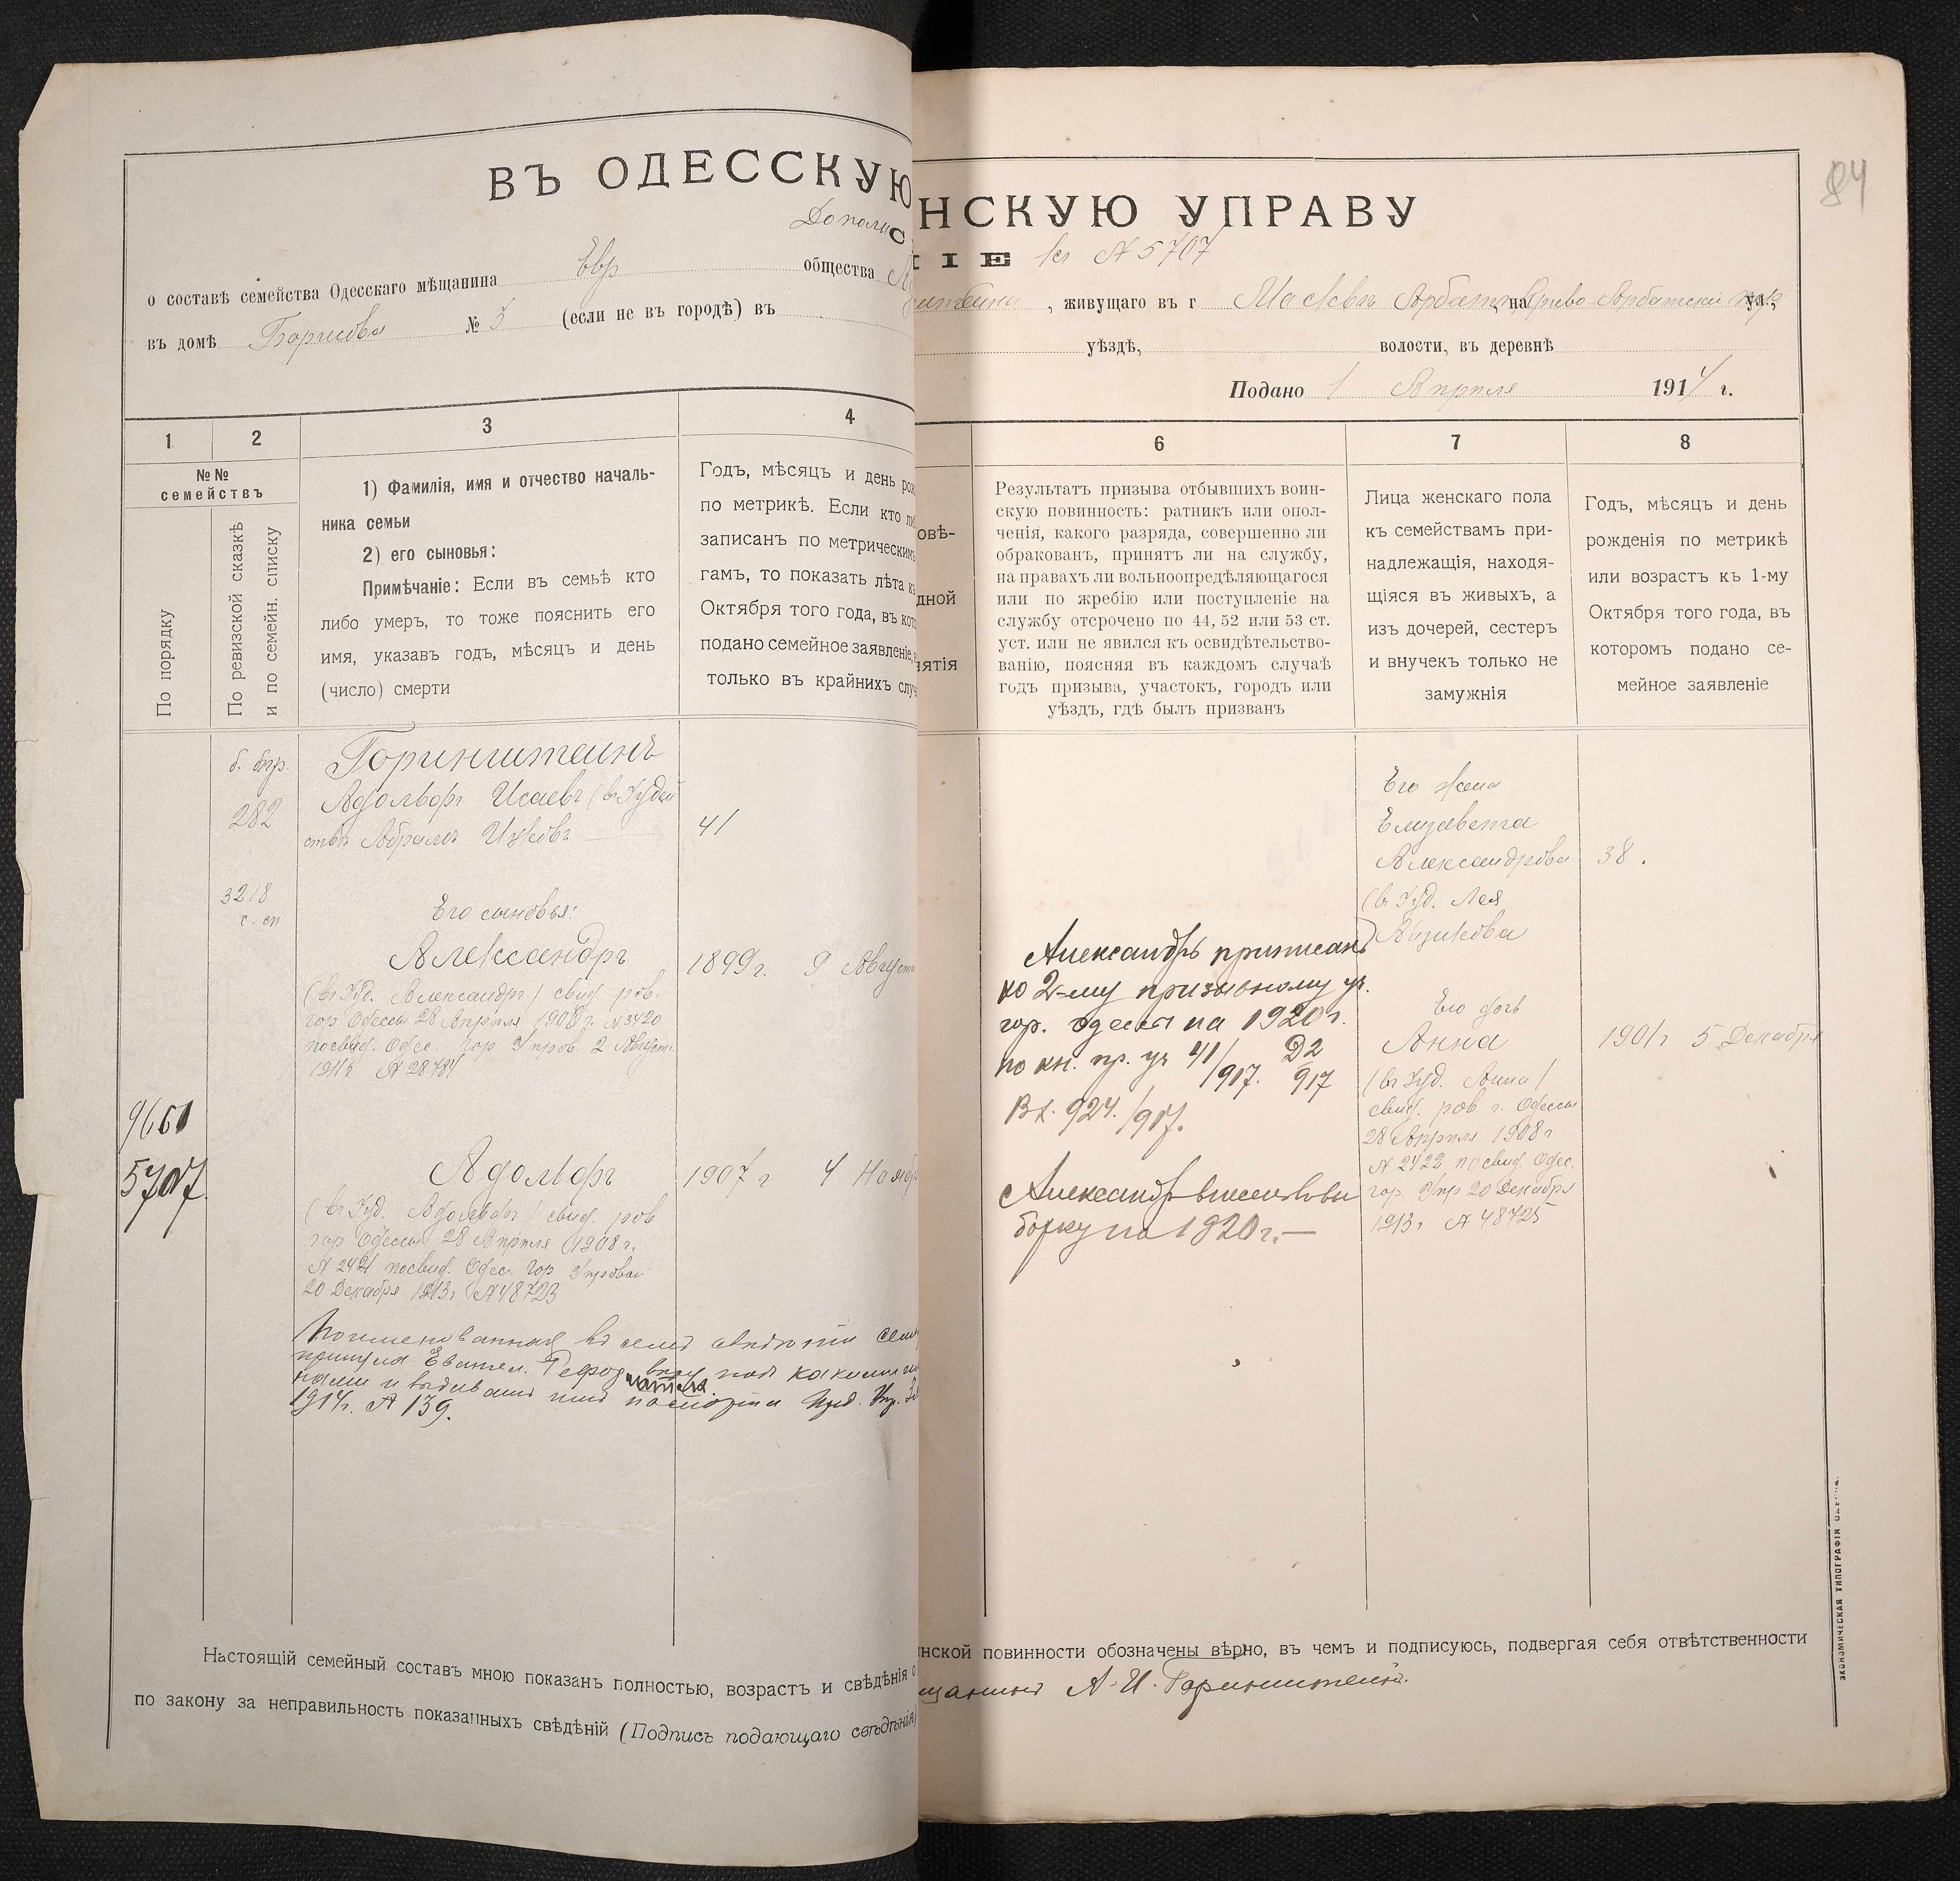 84
ВЪ ОДЕССКУЮ
НСКУЮ УПРАВУ
IЕ къ № 5707
о составѣ семейства Одесскаго мѣщанина Евр общества
, живущаго въ г Москвѣ Арбатъ, на Криво-Арбатскій ул.,
въ домѣ Борисова № 3 (если не въ городѣ) въ
уѣздѣ, волости, въ деревнѣ
Подано 1 Апрѣля 1914 г.
1
2
3
4
6
7
8
№№
семействъ
По порядку
По ревизской сказкѣ
и по семейн. списку
1) Фамилія, имя и отчество началь-
ника семьи
2) его сыновья:
Примѣчаніе: Если въ семьѣ кто
либо умеръ, то тоже пояснить его
имя, указавъ годъ, мѣсяцъ и день
(число) смерти
Годъ, мѣсяцъ и день рож
по метрикѣ. Если кто ли
записанъ по метрическимъ
гамъ, то показать лѣта къ
Октября того года, въ кото
подано семейное заявленіе,
только въ крайнихъ случ
овѣ-
дной
нятія
Результатъ призыва отбывшихъ воин-
скую повинность: ратникъ или опол-
ченія, какого разряда, совершенно ли
обракованъ, принятъ ли на службу,
на правахъ ли вольноопредѣляющагося
или по жребію или поступленіе на
службу отсрочено по 44, 52 или 53 ст.
уст. или не явился къ освидѣтельство-
ванію, поясняя въ каждомъ случаѣ
годъ призыва, участокъ, городъ или
уѣздъ, гдѣ былъ призванъ
Лица женскаго пола
къ семействамъ при-
надлежащія, находя-
щіяся въ живыхъ, а
изъ дочерей, сестеръ
и внучекъ только не
замужнія
Годъ, мѣсяцъ и день
рожденія по метрикѣ
или возрастъ къ 1-му
Октября того года, въ
которомъ подано се-
мейное заявленіе
282
3218
с. сп
9661
5707
Горинштейнъ
Адольфъ Исаевъ (въ Іудей
ствѣ Абрамъ Ицковъ
41
Его сыновья:
Александръ
1899 г. 9 Августа
(въ Іуд. Александръ) свид. рав.
гор Одессы 28 Апрѣля 1908 г. № 3420
по свид. Одес. Гор Управ. 2 Августа
1911 г. № 28784
Адольфъ
1907 г 4 Ноябр
(въ Іуд. Адольфъ) свид. рав
гор Одессы 28 Апрѣля 1908 г.
№ 2421 по свид. Одес. Гор Управы
20 Декабря 1913 г № 48723
Поименованная въ семъ
приняла Евангел. Реформ вѣру подъ какими
1914 г. № 139.
Александръ приписанъ
ко 2-му призывному уч.
гор. Одессы на 1920 г.
по кн. пр. уч 41/917. Д2/917
Вх. 924./917.
Александръ внесенъ въ вы
борку на 1920 г.—
Его жена
Елизавета
Александрова
(въ Іуд. Лея
Айзикова
38.
Его дочь
Анна
1901 г 5 Декабря
(въ Іуд. Анна)
свид. рав. г. Одессы
28 Апрѣля 1908 г
№ 2422 по свид. Одес.
гор. Упр 20 Декабря
1913 г № 48725
Настоящій семейный составъ мною показанъ полностью, возрастъ и свѣдѣнія о
инской повинности обозначены вѣрно, въ чемъ и подписуюсь, подвергая себя отвѣтственности
по закону за неправильность показанныхъ свѣдѣній (Подпись подающаго свѣдѣнія)
щанинъ А. И. Горинштейнъ.
ЭКОНОМИЧЕСКАЯ ТИПОГРАФІЯ